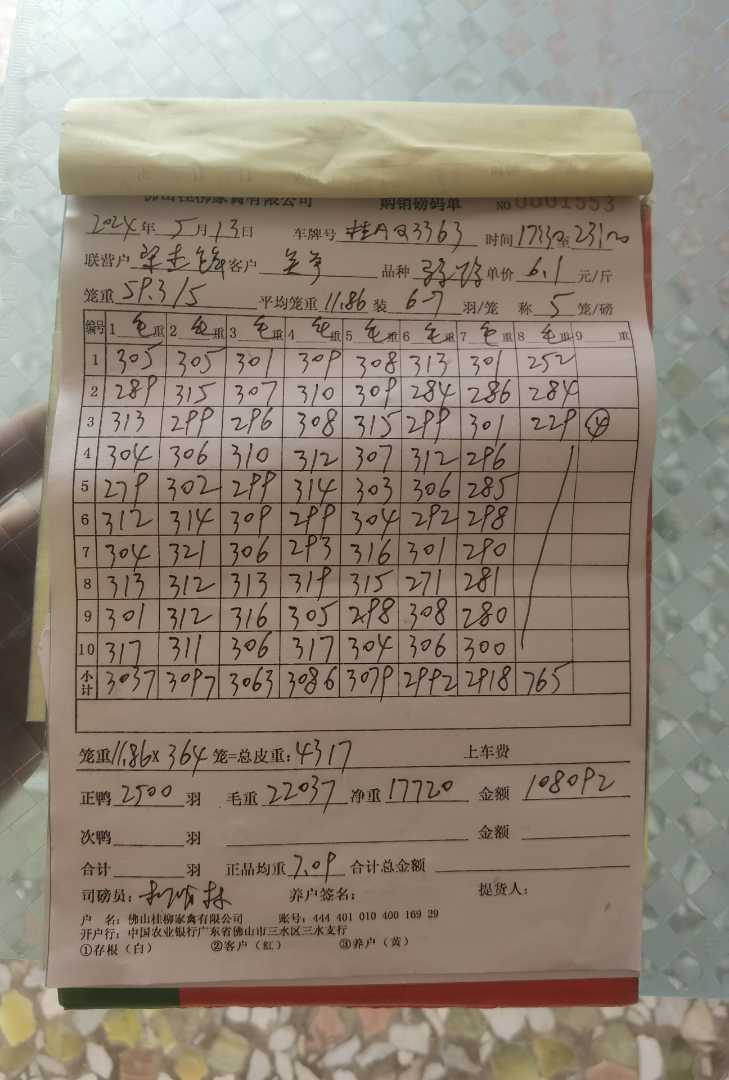 佛山桂柳家禽有限公司 购销磅码单 NO 0001553
2024年 5月13日 车牌号 桂AQ3363 时间 1730至2310
联营户 客户 品种 单价 6.1 元/斤
笼重 59.3/5 平均笼重 11.86 装 6-7 羽/笼 称 5 笼/磅
编号 1 毛重 2 毛重 3 毛重 4 毛重 5 毛重 6 毛重 7 毛重 8 毛重 9 重
1 305 305 301 309 308 313 301 252
2 289 315 307 310 309 284 286 284
3 313 299 296 308 315 299 301 229 ④
4 304 306 310 312 307 312 296
5 279 302 299 314 303 306 285
6 312 314 309 299 304 292 298
7 304 321 306 293 316 301 290
8 313 312 313 319 315 271 281
9 301 312 316 305 298 308 280
10 317 311 306 317 304 306 300
小计 3037 3097 3063 3086 3079 2992 2918 765
笼重11.86× 364 笼=总皮重:4317 上车费
正鸭 2500 羽 毛重 22037 净重 17720 金额 108092
次鸭 羽 金额
合计 羽 正品均重 7.09 合计总金额
司磅员: 养户签名: 提货人:
户 名:佛山桂柳家禽有限公司 账号:444 401 010 400 169 29
开户行:中国农业银行广东省佛山市三水区三水支行
①存根(白) ②客户(红) ③养户(黄)